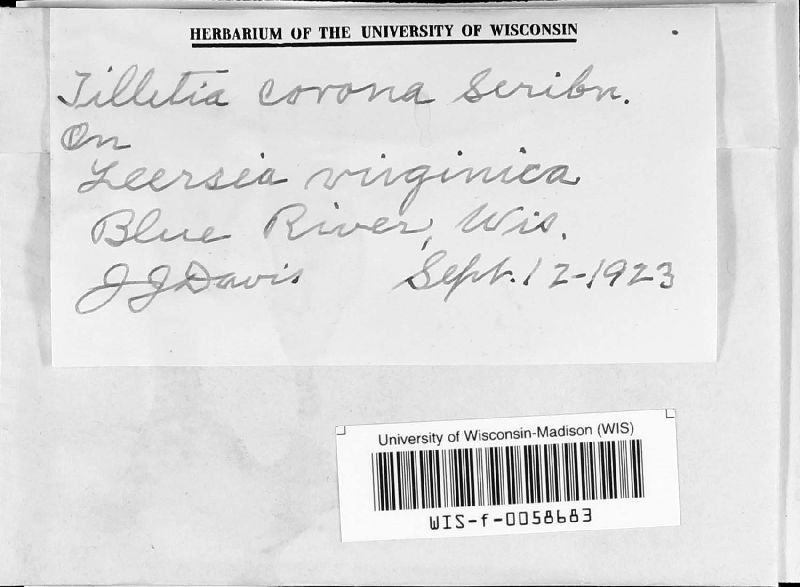 HERBARIUM OF THE UNIVERSITY OF WISCONSIN
Tilletia corona Scribn.
On
Leersia virginica
Blue River, Wis.
J J Davis Sept. 12-1923
University of Wisconsin-Madison (WIS)
WIS-f-0058683